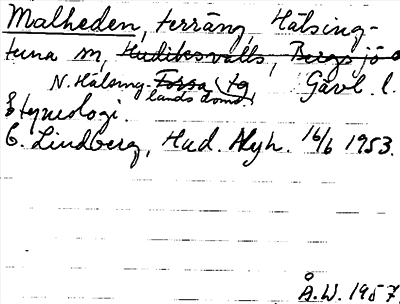 Malheden, terräng, Hälsing-
tuna sn, Hudiksvalls, Bergsjö o
N. Hälsing- Forsa tg Gävl. l.
lands doms
Etymologi.
C. Lindberg, Hud. Nyh. 16/6 1953.
Å.W. 1957.